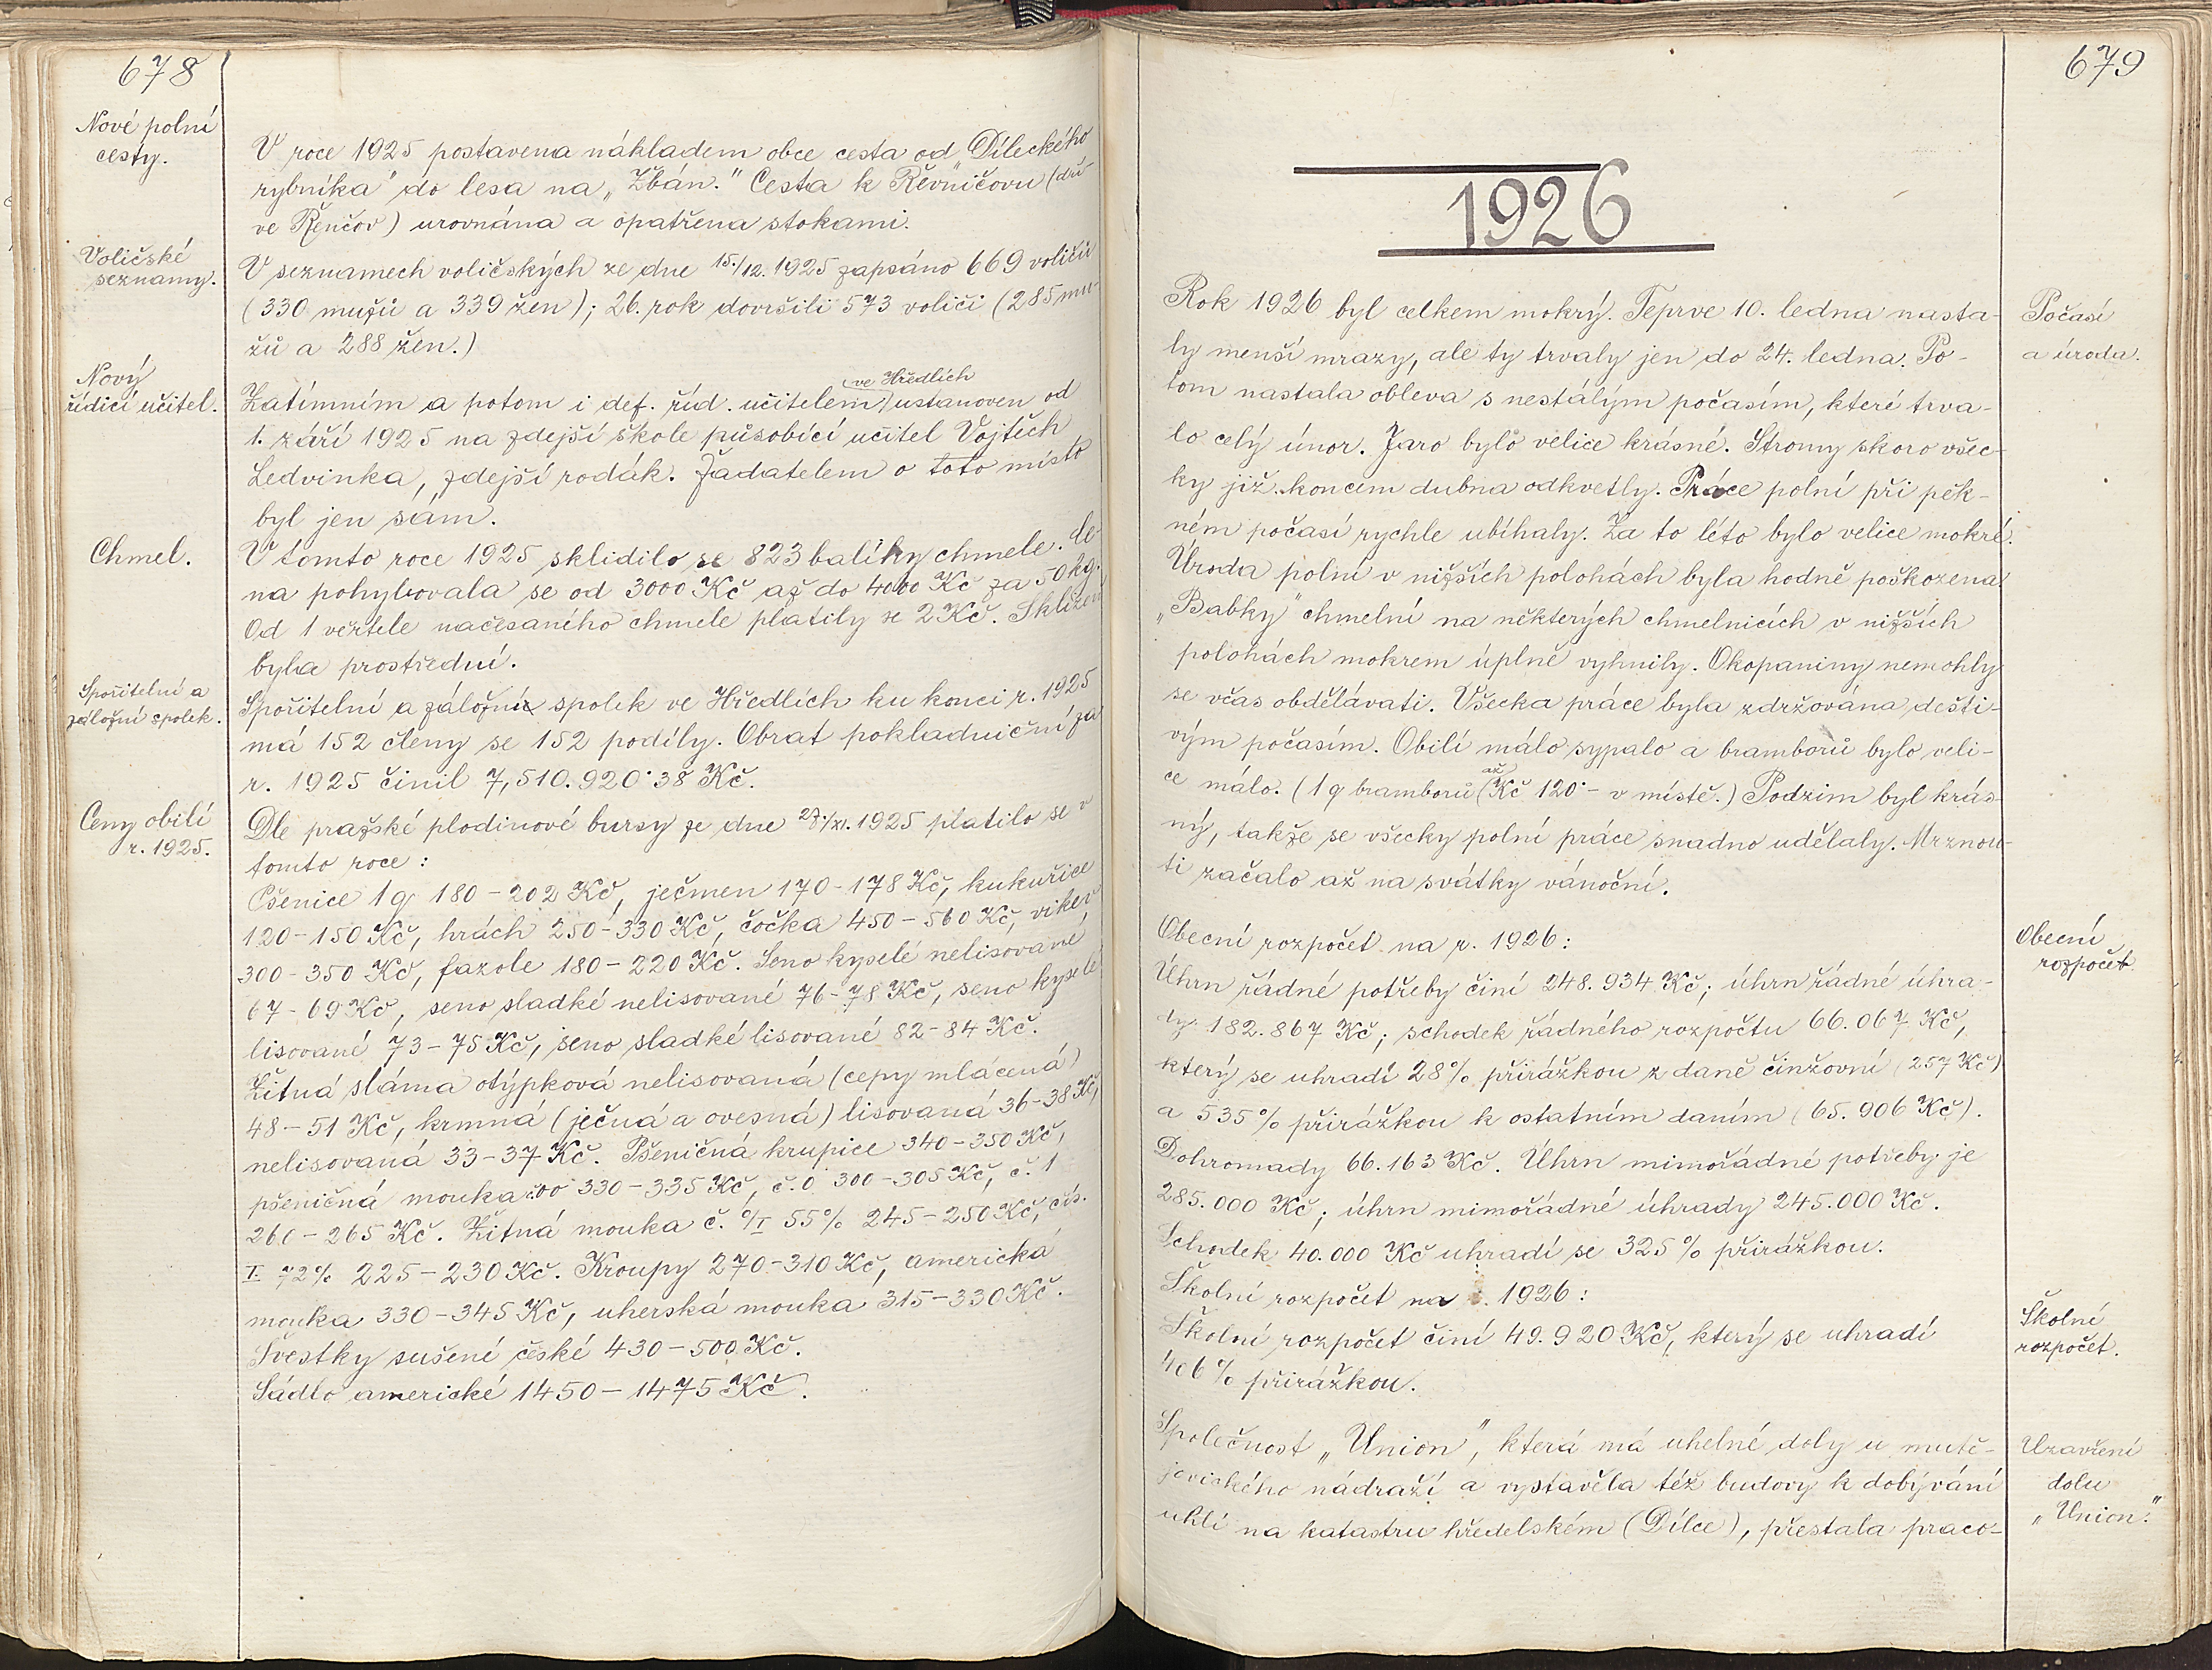 678
Nové polní
cesty.
V roce 1925 postavena nákladem obce cesta od „Díleckého
rybníka" do lesa na „Zbán." Cesta k Řevničovu (dří-
ve Řenčov) urovnána a opatřena stokami.
Voličské
seznamy.
V seznamech voličských ze dne 15./12. 1925 zapsáno 669 voličů
(330 mužů a 339 žen); 26. rok dovršili 573 voliči (285 mu-
žů a 288 žen.)
Nový
řídící učitel.
(ve Hředlích
Zatímním a potom i def. říd. učitelem) ustanoven od
1. září 1925 na zdejší škole působící učitel Vojtěch
Ledvinka, zdejší rodák. Žadatelem o toto místo
byl jen sám.
Chmel.
V tomto roce 1925 sklidilo se 823 balíky chmele. Ce-
na pohybovala se od 3000 Kč až do 4000 Kč za 50 kg.
Od 1 věrtele načesaného chmele platily se 2 Kč. Sklizeň
byla prostřední.
Spořitelní a
záložní spolek.
Spořitelní a záložní spolek ve Hředlích ku konci r. 1925
má 152 členy se 152 podíly. Obrat pokladniční za
r. 1925 činil 7,510.920·38 Kč.
Ceny obilí
r. 1925.
Dle pražské plodinové bursy ze dne 27./XI. 1925 platilo se v
tomto roce:
Pšenice 1 q 180-202 Kč, ječmen 170-178 Kč, kukuřice
120-150 Kč, hrách 250-330 Kč, čočka 450-560 Kč, vikev
300-350 Kč, fazole 180-220 Kč. Seno kyselé nelisované
67-69 Kč, seno sladké nelisované 76-78 Kč, seno kyselé
lisované 73-75 Kč, seno sladké lisované 82-84 Kč.
Žitná sláma otýpková nelisovaná (cepy mlácená)
48-51 Kč, krmná (ječná a ovesná) lisovaná 36-38 Kč,
nelisovaná 33-37 Kč. Pšeničná krupice 340-350 Kč,
pšeničná mouka č. 00 330-335 Kč, č. 0 300-305 Kč, č. 1
260-265 Kč. Žitná mouka č. 0/I 55% 245-250 Kč, čís.
I. 72% 225-230 Kč. Kroupy 270-310 Kč, americká
mouka 330-345 Kč, uherská mouka 315-330 Kč.
Švestky sušené české 430-500 Kč.
Sádlo americké 1450-1475 Kč.
679
1926
Rok 1926 byl celkem mokrý. Teprve 10. ledna nasta-
ly menší mrazy, ale ty trvaly jen do 24. ledna. Po-
tom nastala obleva s nestálým počasím, které trva-
lo celý únor. Jaro bylo velice krásné. Stromy skoro všec-
ky již koncem dubna odkvetly. Práce polní při pěk-
ném počasí rychle ubíhaly. Za to léto bylo velice mokré.
Úroda polní v nižších polohách byla hodně poškozena.
„Babky" chmelní na některých chmelnicích v nižších
polohách mokrem úplně vyhnily. Okopaniny nemohly
se včas obdělávati. Všecka práce byla zdržována dešti-
vým počasím. Obilí málo sypalo a bramborů bylo veli-
ce málo. (1 q bramborů až Kč 120·- v místě.) Podzim byl krás-
ný, takže se všecky polní práce snadno udělaly. Mrznou-
ti začalo až na svátky vánoční.
Počasí
a úroda.
Obecní rozpočet na r. 1926:
Úhrn řádné potřeby činí 248.934 Kč; úhrn řádné úhra-
dy 182.867 Kč; schodek řádného rozpočtu 66.067 Kč,
který se uhradí 28% přirážkou z daně činžovní (257 Kč)
a 535% přirážkou k ostatním daním (65.906 Kč).
Dohromady 66.163 Kč. Úhrn mimořádné potřeby je
285.000 Kč; úhrn mimořádné úhrady 245.000 Kč.
Schodek 40.000 Kč uhradí se 325% přirážkou.
Obecní
rozpočet.
Školní rozpočet na r. 1926:
Školní rozpočet činí 49.920 Kč, který se uhradí
406% přirážkou.
Školní
rozpočet.
Společnost „Union", která má uhelné doly u mutě-
jovického nádraží a vystavěla též budovy k dobývání
uhlí na katastru hředelském (Dílce), přestala praco-
Uzavření
dolu
„Union."